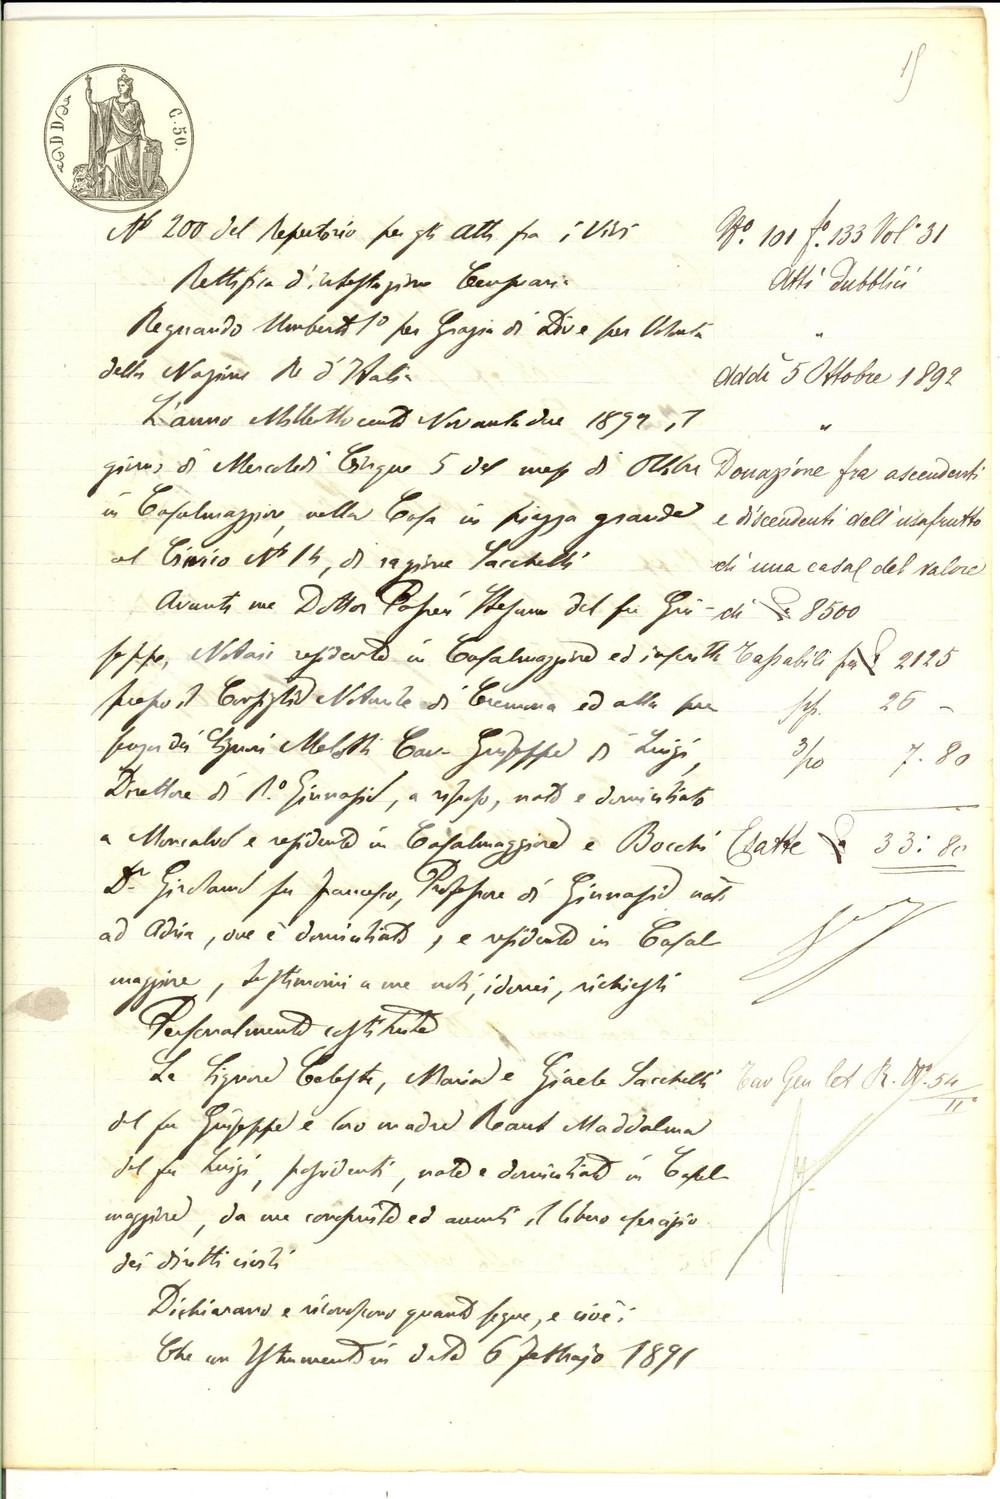 15
C. 50.
N° 200 del Repertorio per gli Atti fra i Vivi
Rettifica d'intestazione Censuaria
Regnando Umberto I° per Grazia di Dio e per Volontà
della Nazione Re d'Italia
L'anno Milleottocento Novantadue 1892, il
giorno di Mercoledì Cinque 5 del mese di Ottobre
in Casalmaggiore, nella Casa in piazza grande
al Civico N° 14, di ragione Sacchelli
Avanti me Dottor Stefano del fu Giu-
seppe, Notaio residente in Casalmaggiore ed inscritto
presso il Consiglio Notarile di Cremona ed alla pre
senza dei Signori Melotti Cav. Giuseppe di Luigi,
Direttore di R.° Ginnasio, a riposo, nato e domiciliato
a Moncalvo e residente in Casalmaggiore e Bocchi
Dr. Girolamo fu Francesco, Professore di Ginnasio nato
ad Adria, ove è domiciliato, e residente in Casal
maggiore, testimoni a me noti, idonei, richiesti
Personalmente costituite
Le Signore Celeste, Maria e Gisele Sacchelli
del fu Giuseppe e loro madre Maddalena
del fu Luigi, possidenti, nate e domiciliate in Casal
maggiore, da me conosciute ed aventi il libero esercizio
dei diritti civili
Dichiarano e riconoscono quanto segue, e cioè:
Che con Istrumento in data 6 Febbrajo 1891
N°. 101 f.° 133 Vol° 31
Atti Pubblici
"
Addì 5 Ottobre 1892
"
Donazione fra ascendenti
e discendenti dell'usufrutto
di una casa del valore
di £ 8500
Tassabili per £ 2125
26 -
3/10 7.80
Esatte £ 33:80
R. N°. 54
II°